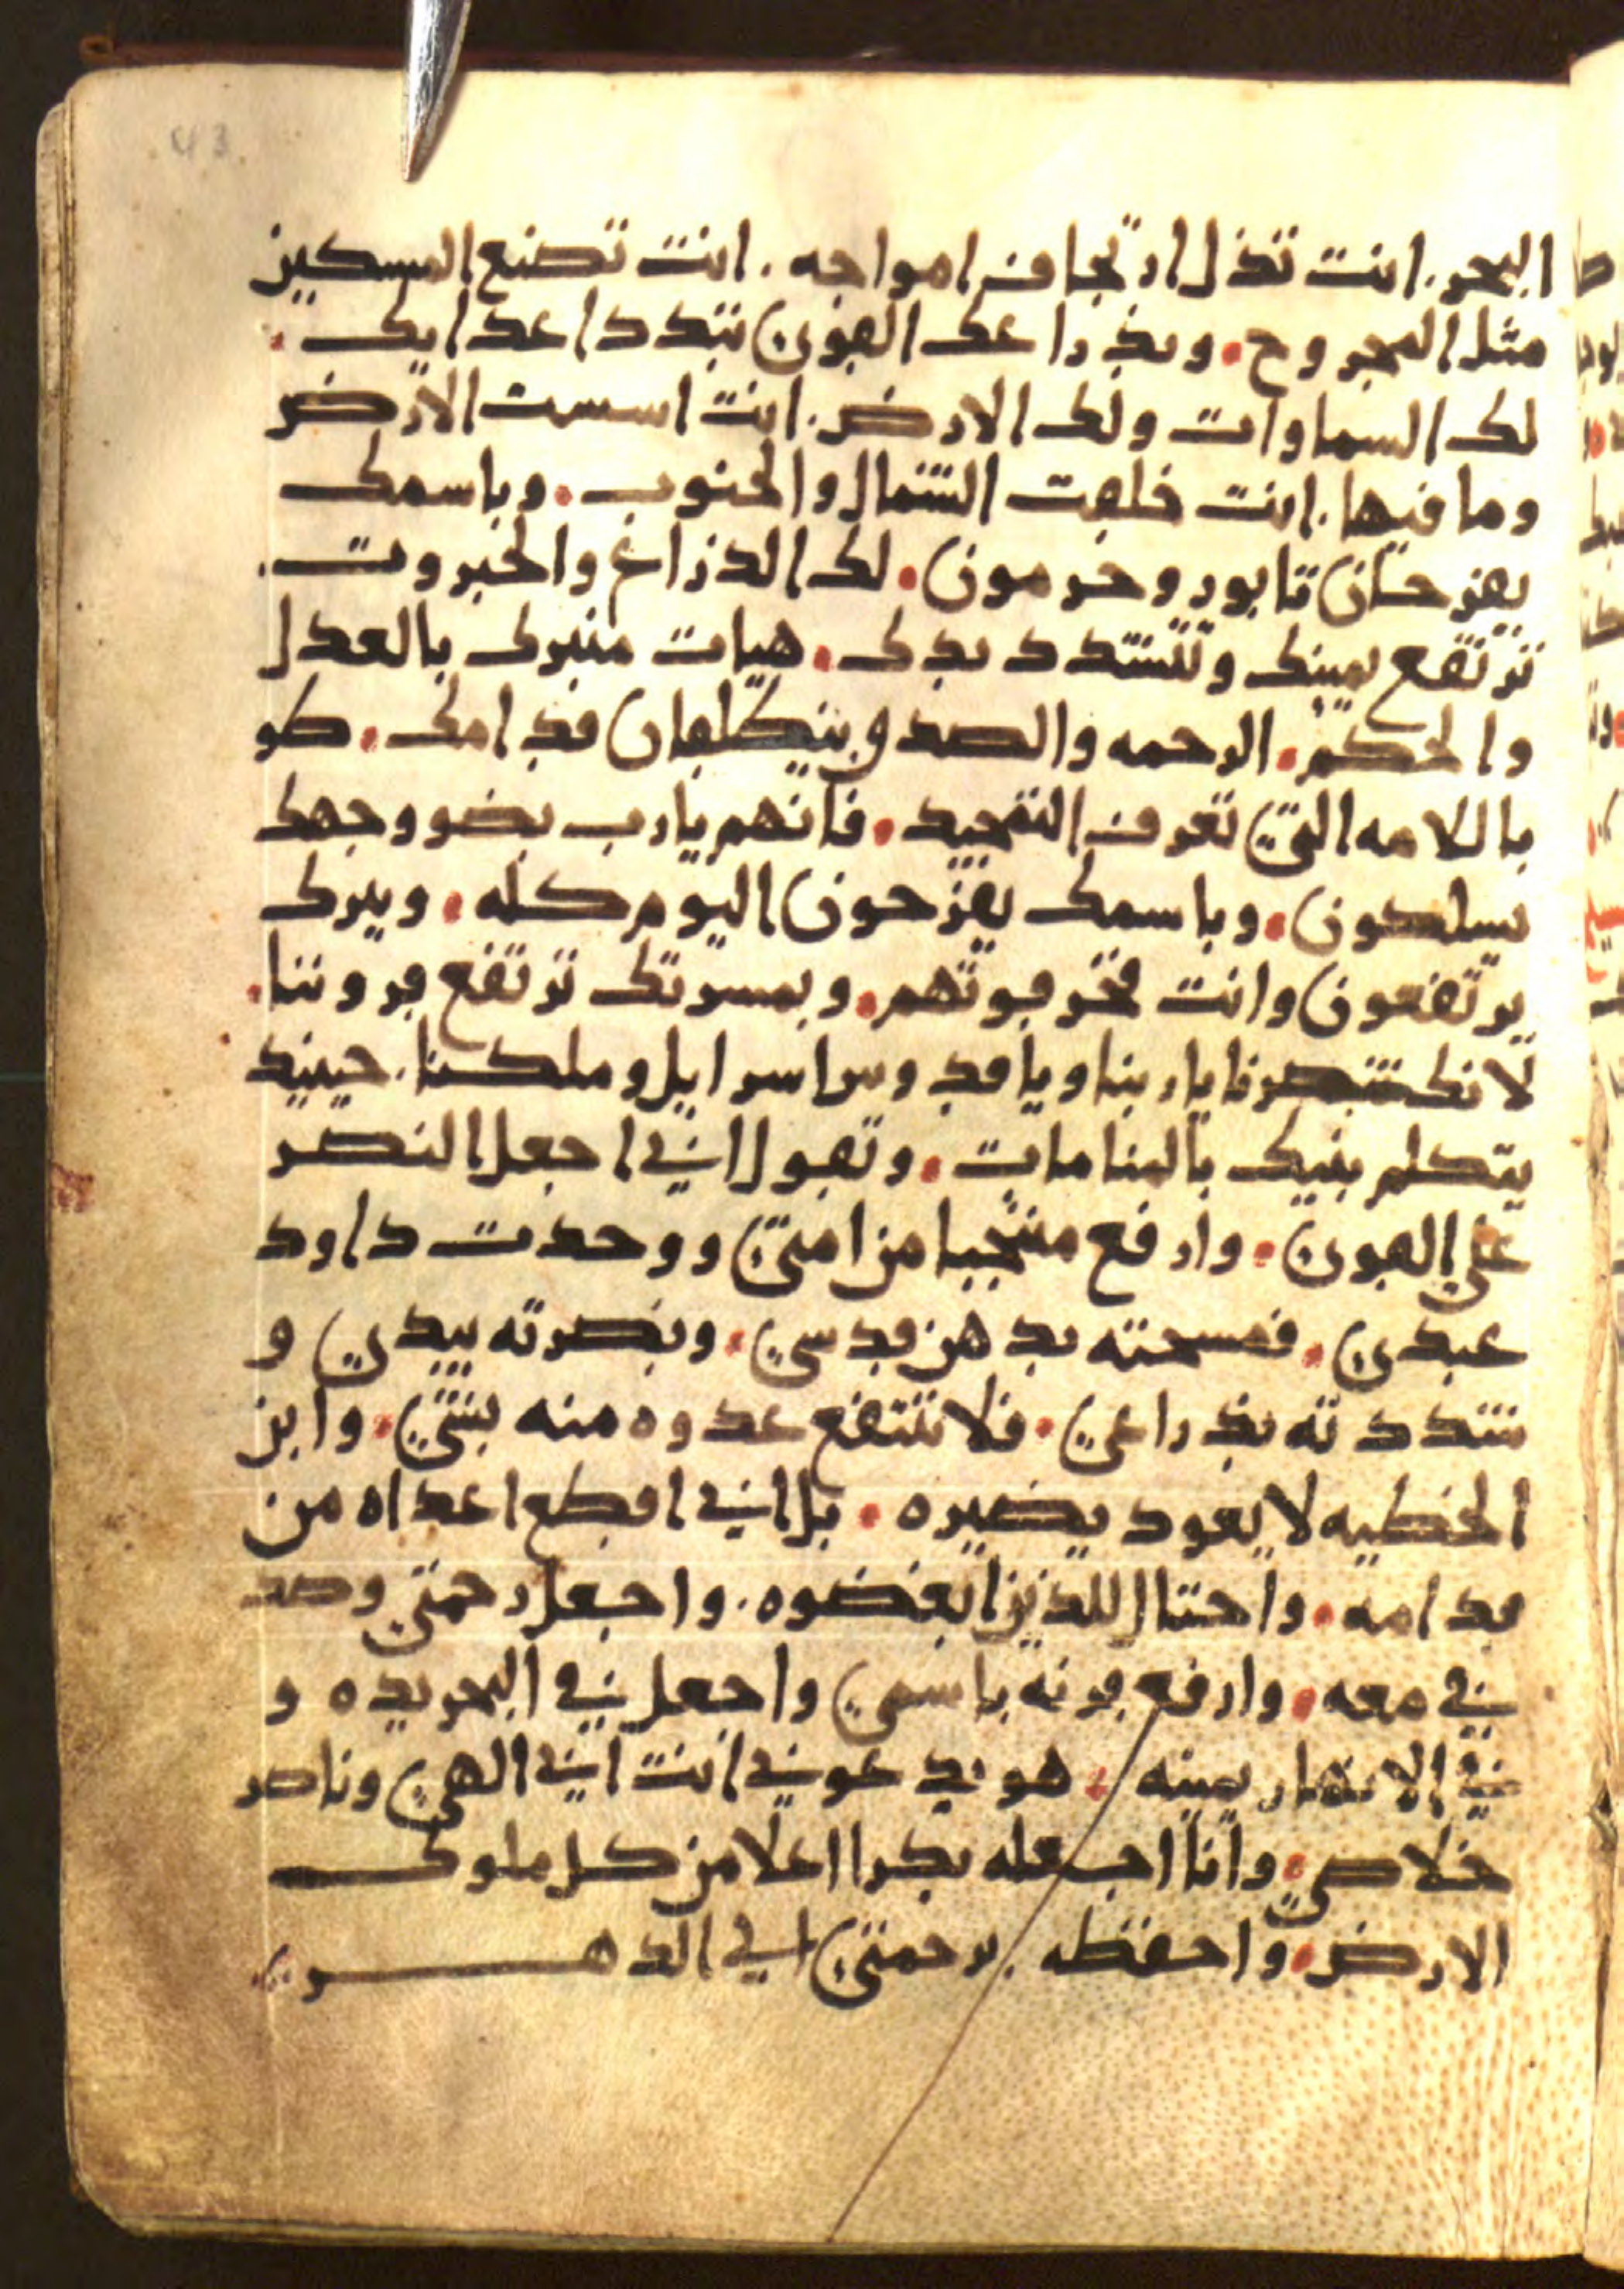 43
البحر. انت تذل ارتجاف امواجه. انت تصنع المسكين
مثل المجروح. وبذراعك القوي تبدد اعدايك.
لك السماوات ولك الارض. انت اسست الارض
وما فيها. انت خلقت الشمال والجنوب. وباسمك
يفرحان تابور وحرمون. لك الذراع والجبروت.
ترتفع يمينك وتتشدد يدك. هيات منبرك بالعدل
والحكم. الرحمه والصدق ينطلقان قدامك. طو
با للامه التي تعرف التمجيد. فانهم يا رب بضو وجهك
يسلكون. وباسمك يفرحون اليوم كله. وببرك
يرتفعون وانت فخر قوتهم. وبمسرتك ترتفع قروننا.
لانك تنصرنا يا ربنا ويا قدوس اسرايل وملكنا. حينيد
يتكلم بنيك بالمنامات. وتقول اني اجعل النصر
على القوي. وارفع منتجبا من امتي ووحدت داود
عبدي. فمسحته بدهن قدسي. ونصرته بيدي و
شددته بذراعي. فلا تنتفع عدوه منه بشي. وابن
الخطيه لا يعود يضيره. بل اني اقطع اعداه من
قدامه. واحتال للذين ابغضوه. واجعل رحمتي وصد
قي معه. وارفع قرنه باسمي واجعل في البحر يده و
في الانهار يمينه. هو يدعوني انت ابي الهي وناصر
خلاصي. وانا اجعله بكرا اعلا من كل ملوك
الارض. واحفظه برحمتي الي الدهر